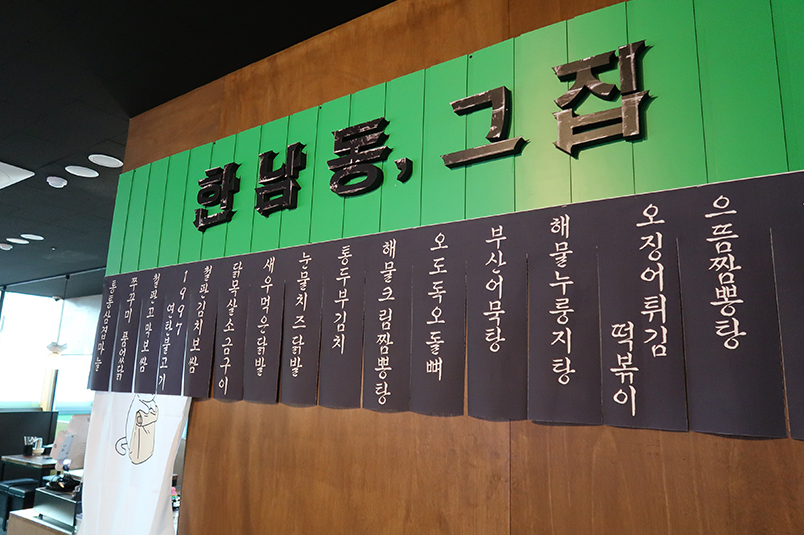 한남동, 그집
통통삼겹마늘
쭈꾸미 품어쓰닭
철판꼬막보쌈
1997 연탄불고기
철판김치보쌈
닭목살소금구이
새우먹은닭발
눈물치즈닭발
통두부김치
해물크림짬뽕탕
오도독오돌뼈
부산어묵탕
해물누룽지탕
오징어튀김 떡볶이
으뜸짬뽕탕